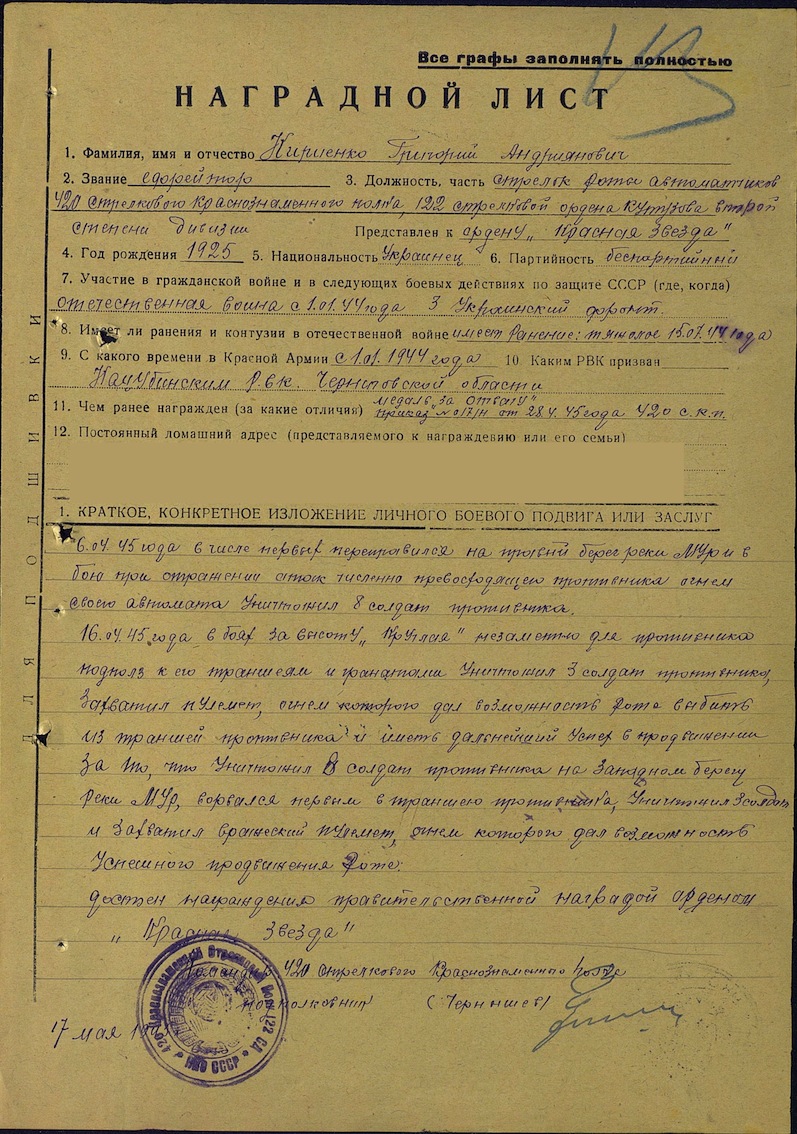 Все графы заполнять полностью
НАГРАДНОЙ ЛИСТ
1. Фамилия, имя и отчество Кириенко Григорий Андриянович
2. Звание ефрейтор 3. Должность, часть стрелок роты автоматчиков
420 стрелкового Краснознаменного полка, 122 стрелковой ордена Кутузова второй
степени дивизии Представлен к ордену „Красная Звезда"
4. Год рождения 1925 5. Национальность Украинец 6. Партийность беспартийный
7. Участие в гражданской войне и в следующих боевых действиях по защите СССР (где, когда)
отечественная воина с 1.01.44 года 3 Украинский фронт.
8. Имеет ли ранения и контузии в отечественной войне имеет ранение: тяжолое 15.07.44 года
9. С какого времени в Красной Армии с 1.01.1944 года 10. Каким РВК призван
Рвк. Черниговской области
11. Чем ранее награжден (за какие отличия) медаль „за отвагу"
приказ № 017/н от 28.4.45 года 420 с.к.п.
12. Постоянный домашний адрес (представляемого к награждению или его семьи)
1. КРАТКОЕ, КОНКРЕТНОЕ ИЗЛОЖЕНИЕ ЛИЧНОГО БОЕВОГО ПОДВИГА ИЛИ ЗАСЛУГ
6.04.45 года в числе первых переправился на правий берег реки МУр и в
бою при отражении атак численно превосходящего противника огнем
своего автомата Уничтожил 8 солдат противника.
16.04.45 года в боях за высоту „Круглая" незаметно для противника
подполз к его траншеям и гранатами Уничтожил 3 солдат противника,
Захватил пулемет, огнем которого дал возможность роте выбить
из траншей противника и иметь дальнейший Успех в продвижении
За то, что Уничтожил 8 солдат противника на Западном берегу
реки МУр, ворвался первым в траншею противника, Уничтожил 3 солдат
и Захватил вражеский пулемет, огнем которого дал возможность
Успешного продвижения роте.
достоен награждения правительственной наградой орденом
„Красная Звезда"
Командир 420 стрелкового Краснознаменного полка
подполковник (Чернышев)
17 мая
НКО СССР
ДЛЯ ПОДШИВКИ